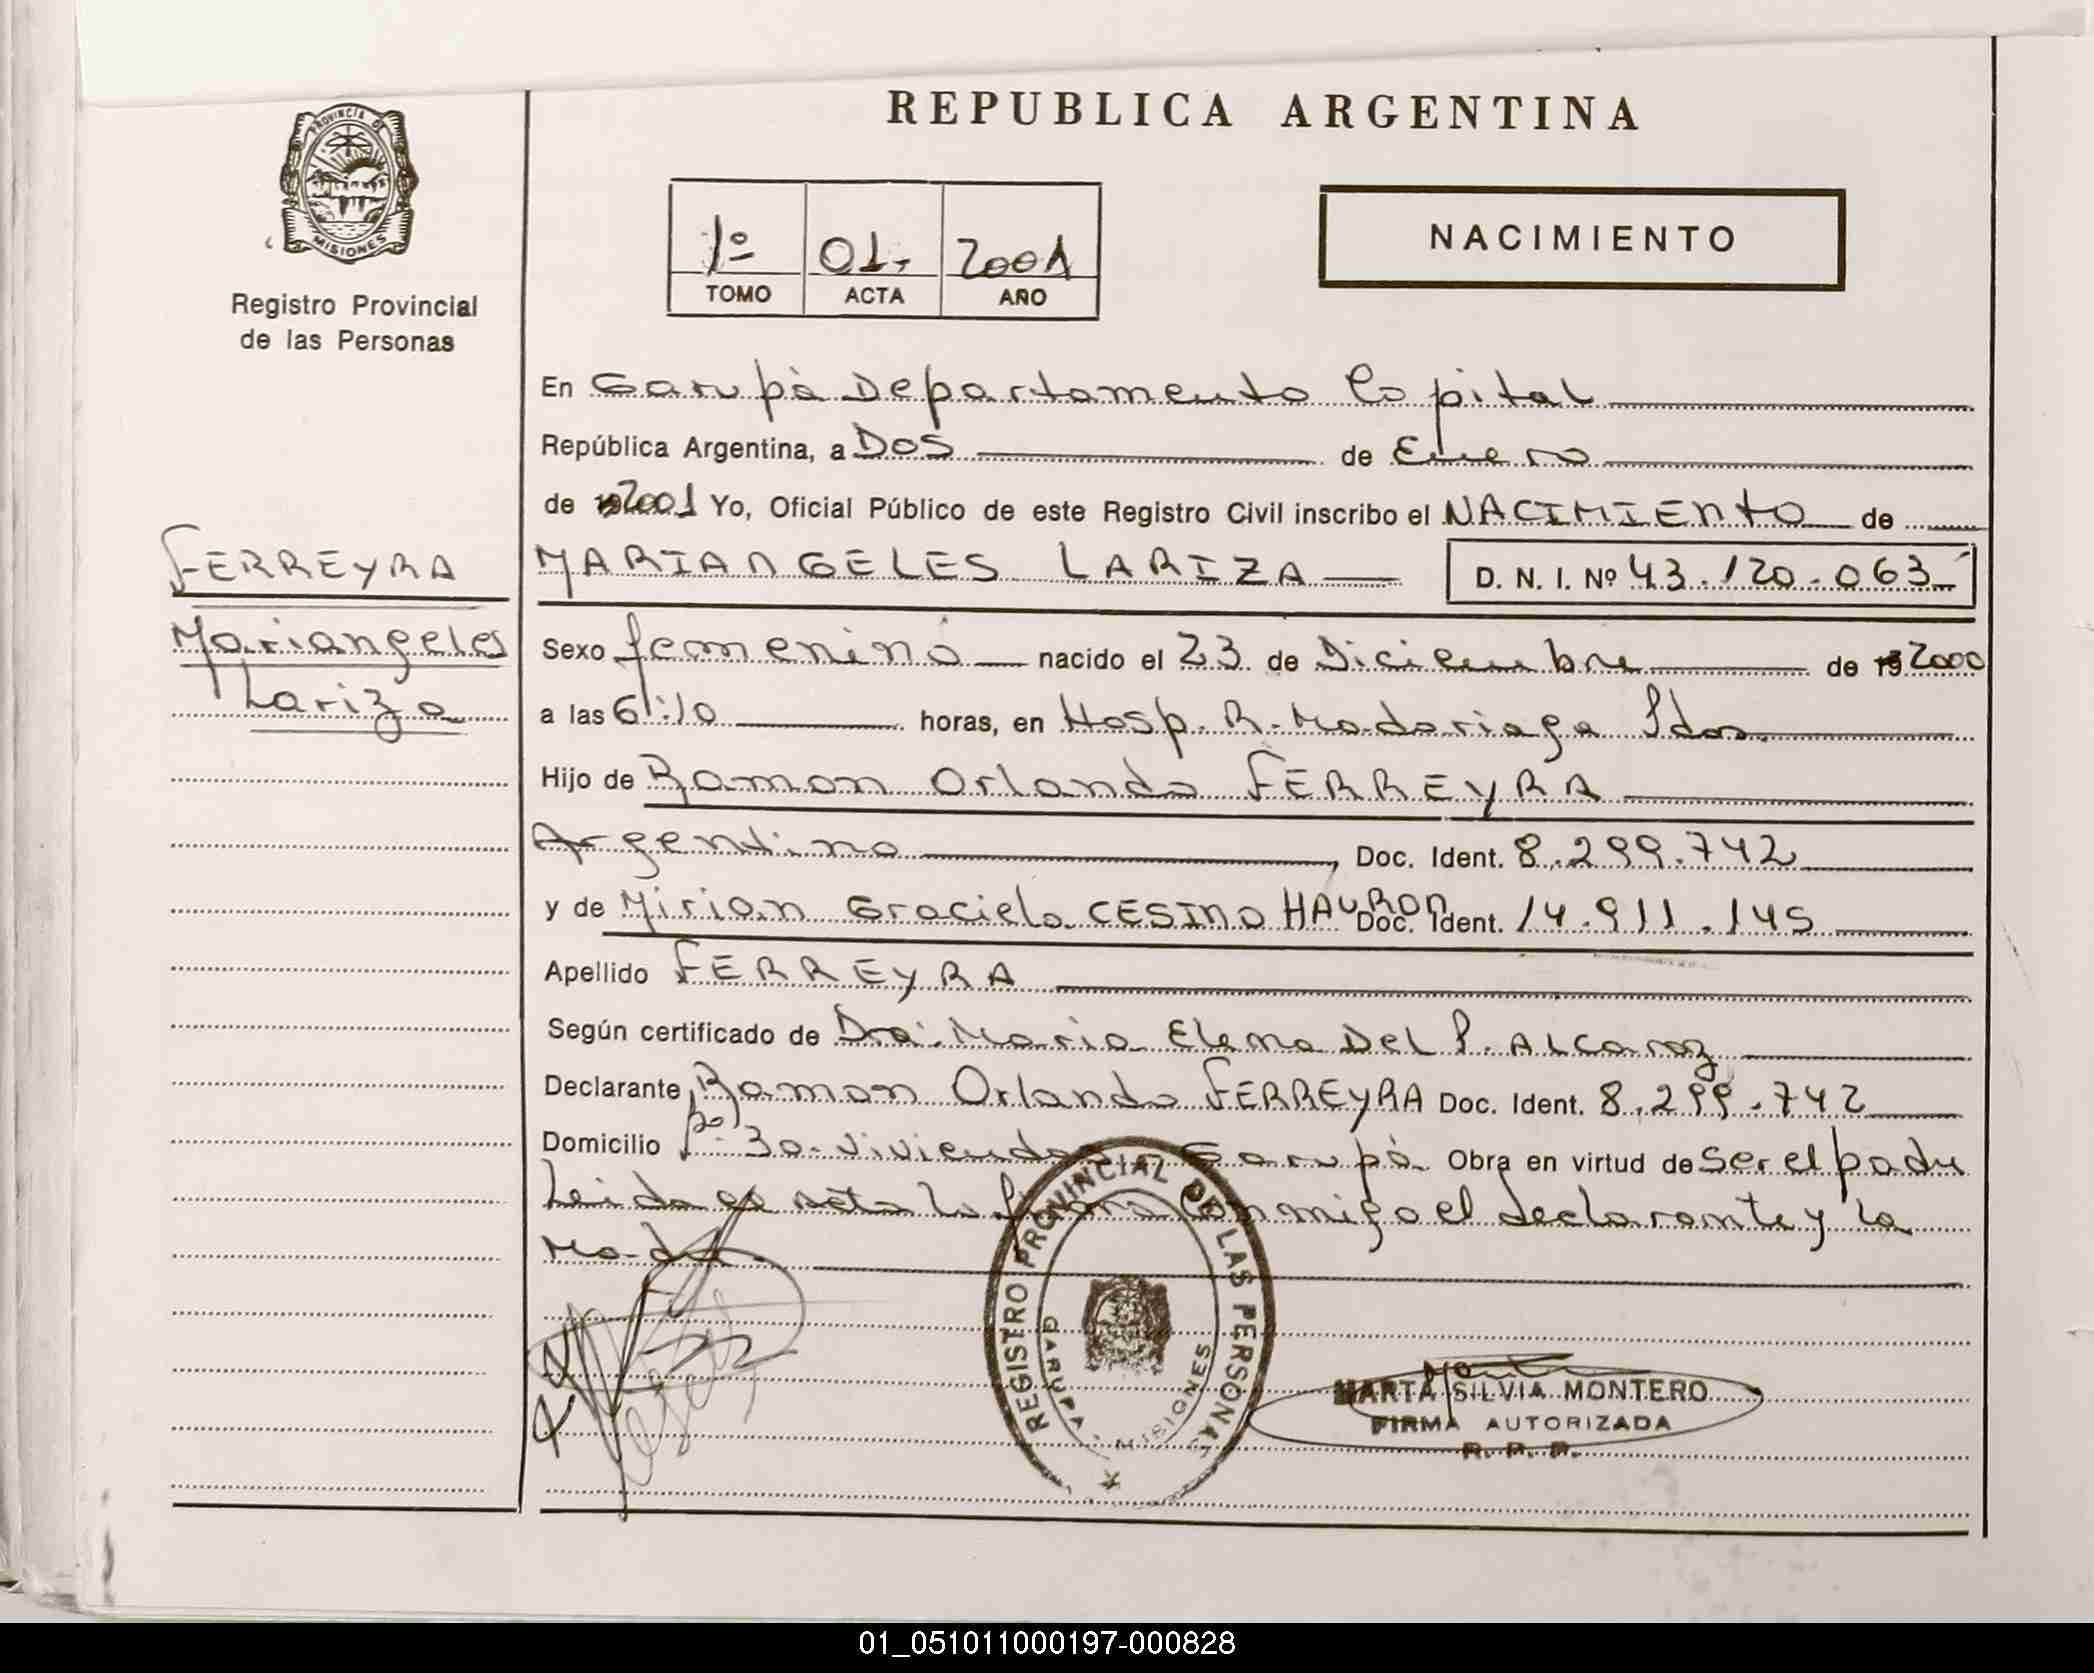 REPUBLICA ARGENTINA
PROVINCIA DE
MISIONES
Registro Provincial
de las Personas
1º 01. 2001
TOMO ACTA AÑO
NACIMIENTO
En Garupà Departamento Capital
República Argentina, a Dos de Enero
de 2001 Yo, Oficial Público de este Registro Civil inscribo el NACIMIENTO de
FERREYRA
Mariangeles
Lariza
MARIANGELES LARIZA D. N. I. Nº 43.120.063
Sexo femenino nacido el 23 de Diciembre de 19 2000
a las 6:10 horas, en Hosp. R. Madariaga Pdas.
Hijo de Ramon Orlando FERREYRA
Argentino, Doc. Ident. 8.299.742
y de Mirian Graciela CESINO HAURON Doc. Ident. 14.911.145
Apellido FERREYRA
Según certificado de Dra. Maria Elena Del P. ALcaraz
Declarante Ramon Orlando FERREYRA Doc. Ident. 8.299.742
Domicilio Bº 30 viviendas Garupà Obra en virtud de ser el padre
Leida el acta la firma conmigo el declarante y la
Madre
REGISTRO PROVINCIAL DE LAS PERSONAS
GARUPA
MISIONES
MARTA SILVIA MONTERO
FIRMA AUTORIZADA
R. P. P.
01_051011000197-000828